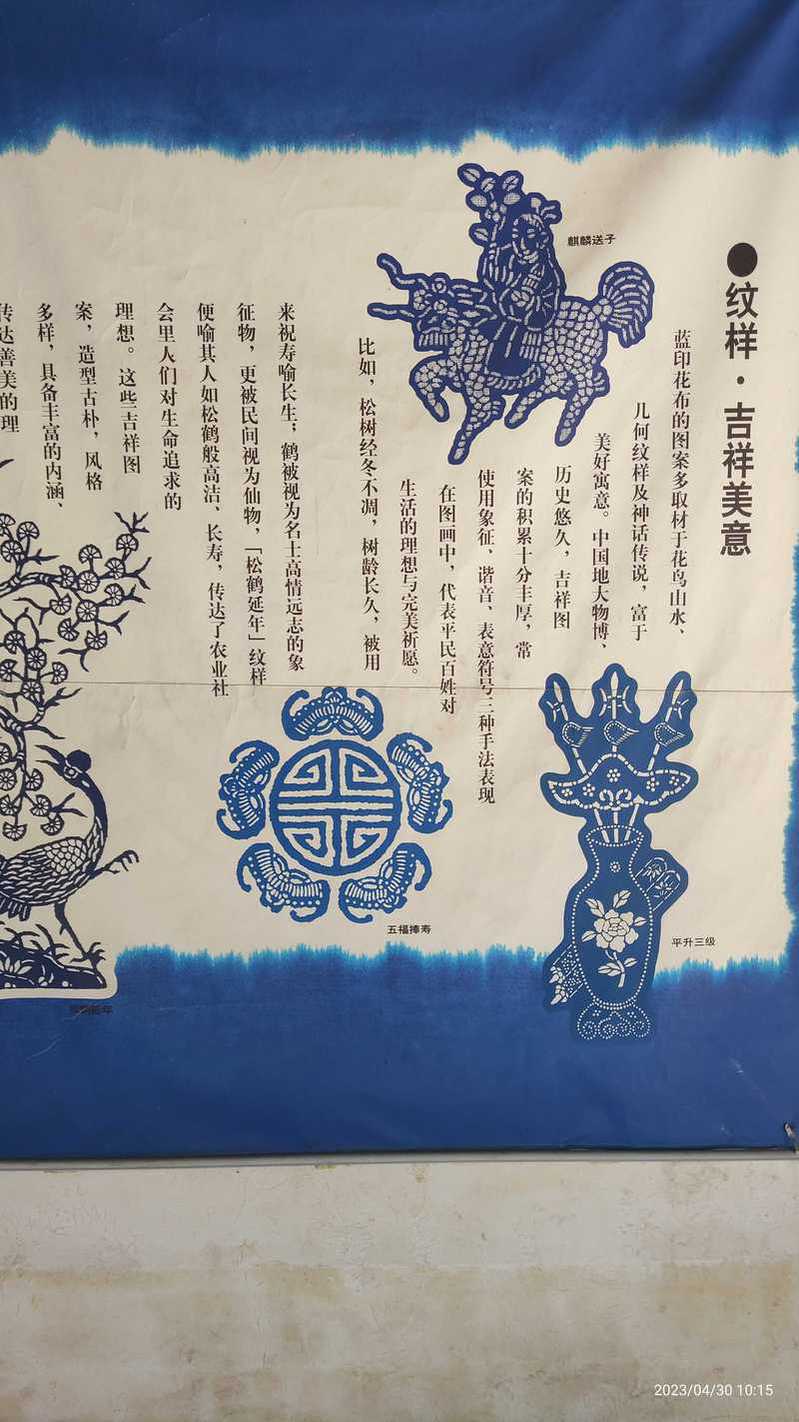 ●纹样·吉祥美意
蓝印花布的图案多取材于花鸟山水、
几何纹样及神话传说，富于
美好寓意。中国地大物博、
历史悠久，吉祥图
案的积累十分丰厚，常
使用象征、谐音、表意符号三种手法表现
在图画中，代表平民百姓对
生活的理想与完美祈愿。
比如，松树经冬不凋，树龄长久，被用
来祝寿喻长生；鹤被视为名士高情远志的象
征物，更被民间视为仙物，「松鹤延年」纹样
便喻其人如松鹤般高洁、长寿，传达了农业社
会里人们对生命追求的
理想。这些吉祥图
案，造型古朴，风格
多样，具备丰富的内涵、
传达善美的理
麒麟送子
平升三级
五福捧寿
2023/04/30 10:15